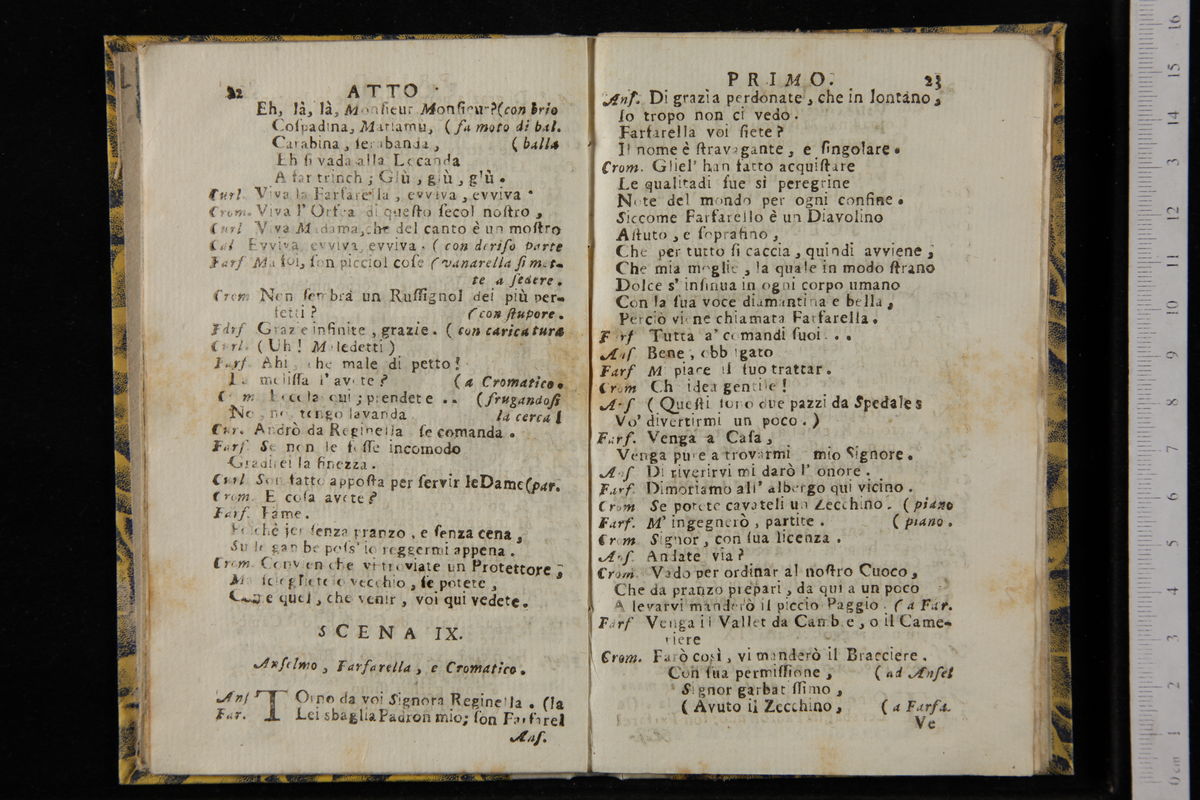 22 ATTO
Eh, là, là, Monſieur Monſieur? (con brio
Coſpadina, Mariamu, (fa moto di bal.
Carabina, ſerabanda, (balla
Eh ſi vada alla Locanda
A far trinch; Glù, glù, glù.
Curl. Viva la Farfarella, evviva, evviva
Crom. Viva l' Orfea di queſto ſecol noſtro,
Curl Viva Madama, che del canto è un moſtro
Cal Evviva, evviva, evviva. (con deriſo parte
Farſ Ma foi, ſon picciol coſe (vanarella ſi met-
te a ſedere.
Crom Non ſembra un Ruſſignol dei più per-
fetti? (con ſtupore.
Farſ Grazie infinite, grazie. (con caricatura
Curl. (Uh! Maledetti)
Farſ. Ahi, che male di petto!
La meliſſa l' avete? (a Cromatico.
Crom. Eccola qui; prendete .. (frugandoſi
No, no, tengo lavanda la cerca l
Cur. Andrò da Reginella ſe comanda.
Farſ Se non le foſſe incomodo
Gradirei la finezza.
Curl Son fatto appoſta per ſervir le Dame (par.
Crom. E coſa avete?
Farſ. Fame.
Poichè jer ſenza pranzo, e ſenza cena,
Su le gambe poſs' io reggermi appena.
Crom. Convien che vi troviate un Protettore;
Ma ſciegliete lo vecchio, ſe potete,
Come quel, che venir, voi qui vedete.
SCENA IX.
Anſelmo, Farfarella, e Cromatico.
Anſ TOrno da voi Signora Reginella. (la
Far. Lei sbaglia Padron mio; ſon Farfarel
Anſ.
PRIMO. 23
Anſ. Di grazia perdonate, che in lontano,
Io tropo non ci vedo.
Farfarella voi ſiete?
Il nome è ſtravagante, e ſingolare.
Crom. Gliel' han fatto acquiſtare
Le qualitadi ſue sì peregrine
Note del mondo per ogni confine.
Siccome Farfarello è un Diavolino
Aſtuto, e ſoprafino,
Che per tutto ſi caccia, quindi avviene;
Che mia moglie, la quale in modo ſtrano
Dolce s' inſinua in ogni corpo umano
Con la ſua voce diamantina e bella,
Perciò viene chiamata Farfarella.
Farſ Tutta a' comandi ſuoi...
Anſ Bene, obbligato
Farſ Mi piace il ſuo trattar.
Crom Ch' idea gentile!
Anſ (Queſti ſono due pazzi da Spedales
Vo' divertirmi un poco.)
Farſ. Venga a Caſa,
Venga pure a trovarmi mio Signore.
Anſ Di riverirvi mi darò l' onore.
Farſ. Dimoriamo all' albergo qui vicino.
Crom Se potete cavateli un Zecchino. (piano
Farſ. M' ingegnerò, partite. (piano.
Crom. Signor, con ſua licenza.
Anſ. Andate via?
Crom. Vado per ordinar al noſtro Cuoco,
Che da pranzo prepari, da qui a un poco
A levarvi manderò il piccio Paggio. (a Far.
Farſ Venga il Vallet da Cambre, o il Came-
riere
Crom. Farò così, vi manderò il Bracciere.
Con ſua permiſſione, (ad Anſel
Signor garbatiſſimo,
(Avuto il Zecchino, (a Farſa.
Ve
16
15
14
13
12
11
10
9
8
7
6
5
4
3
2
1
0 cm